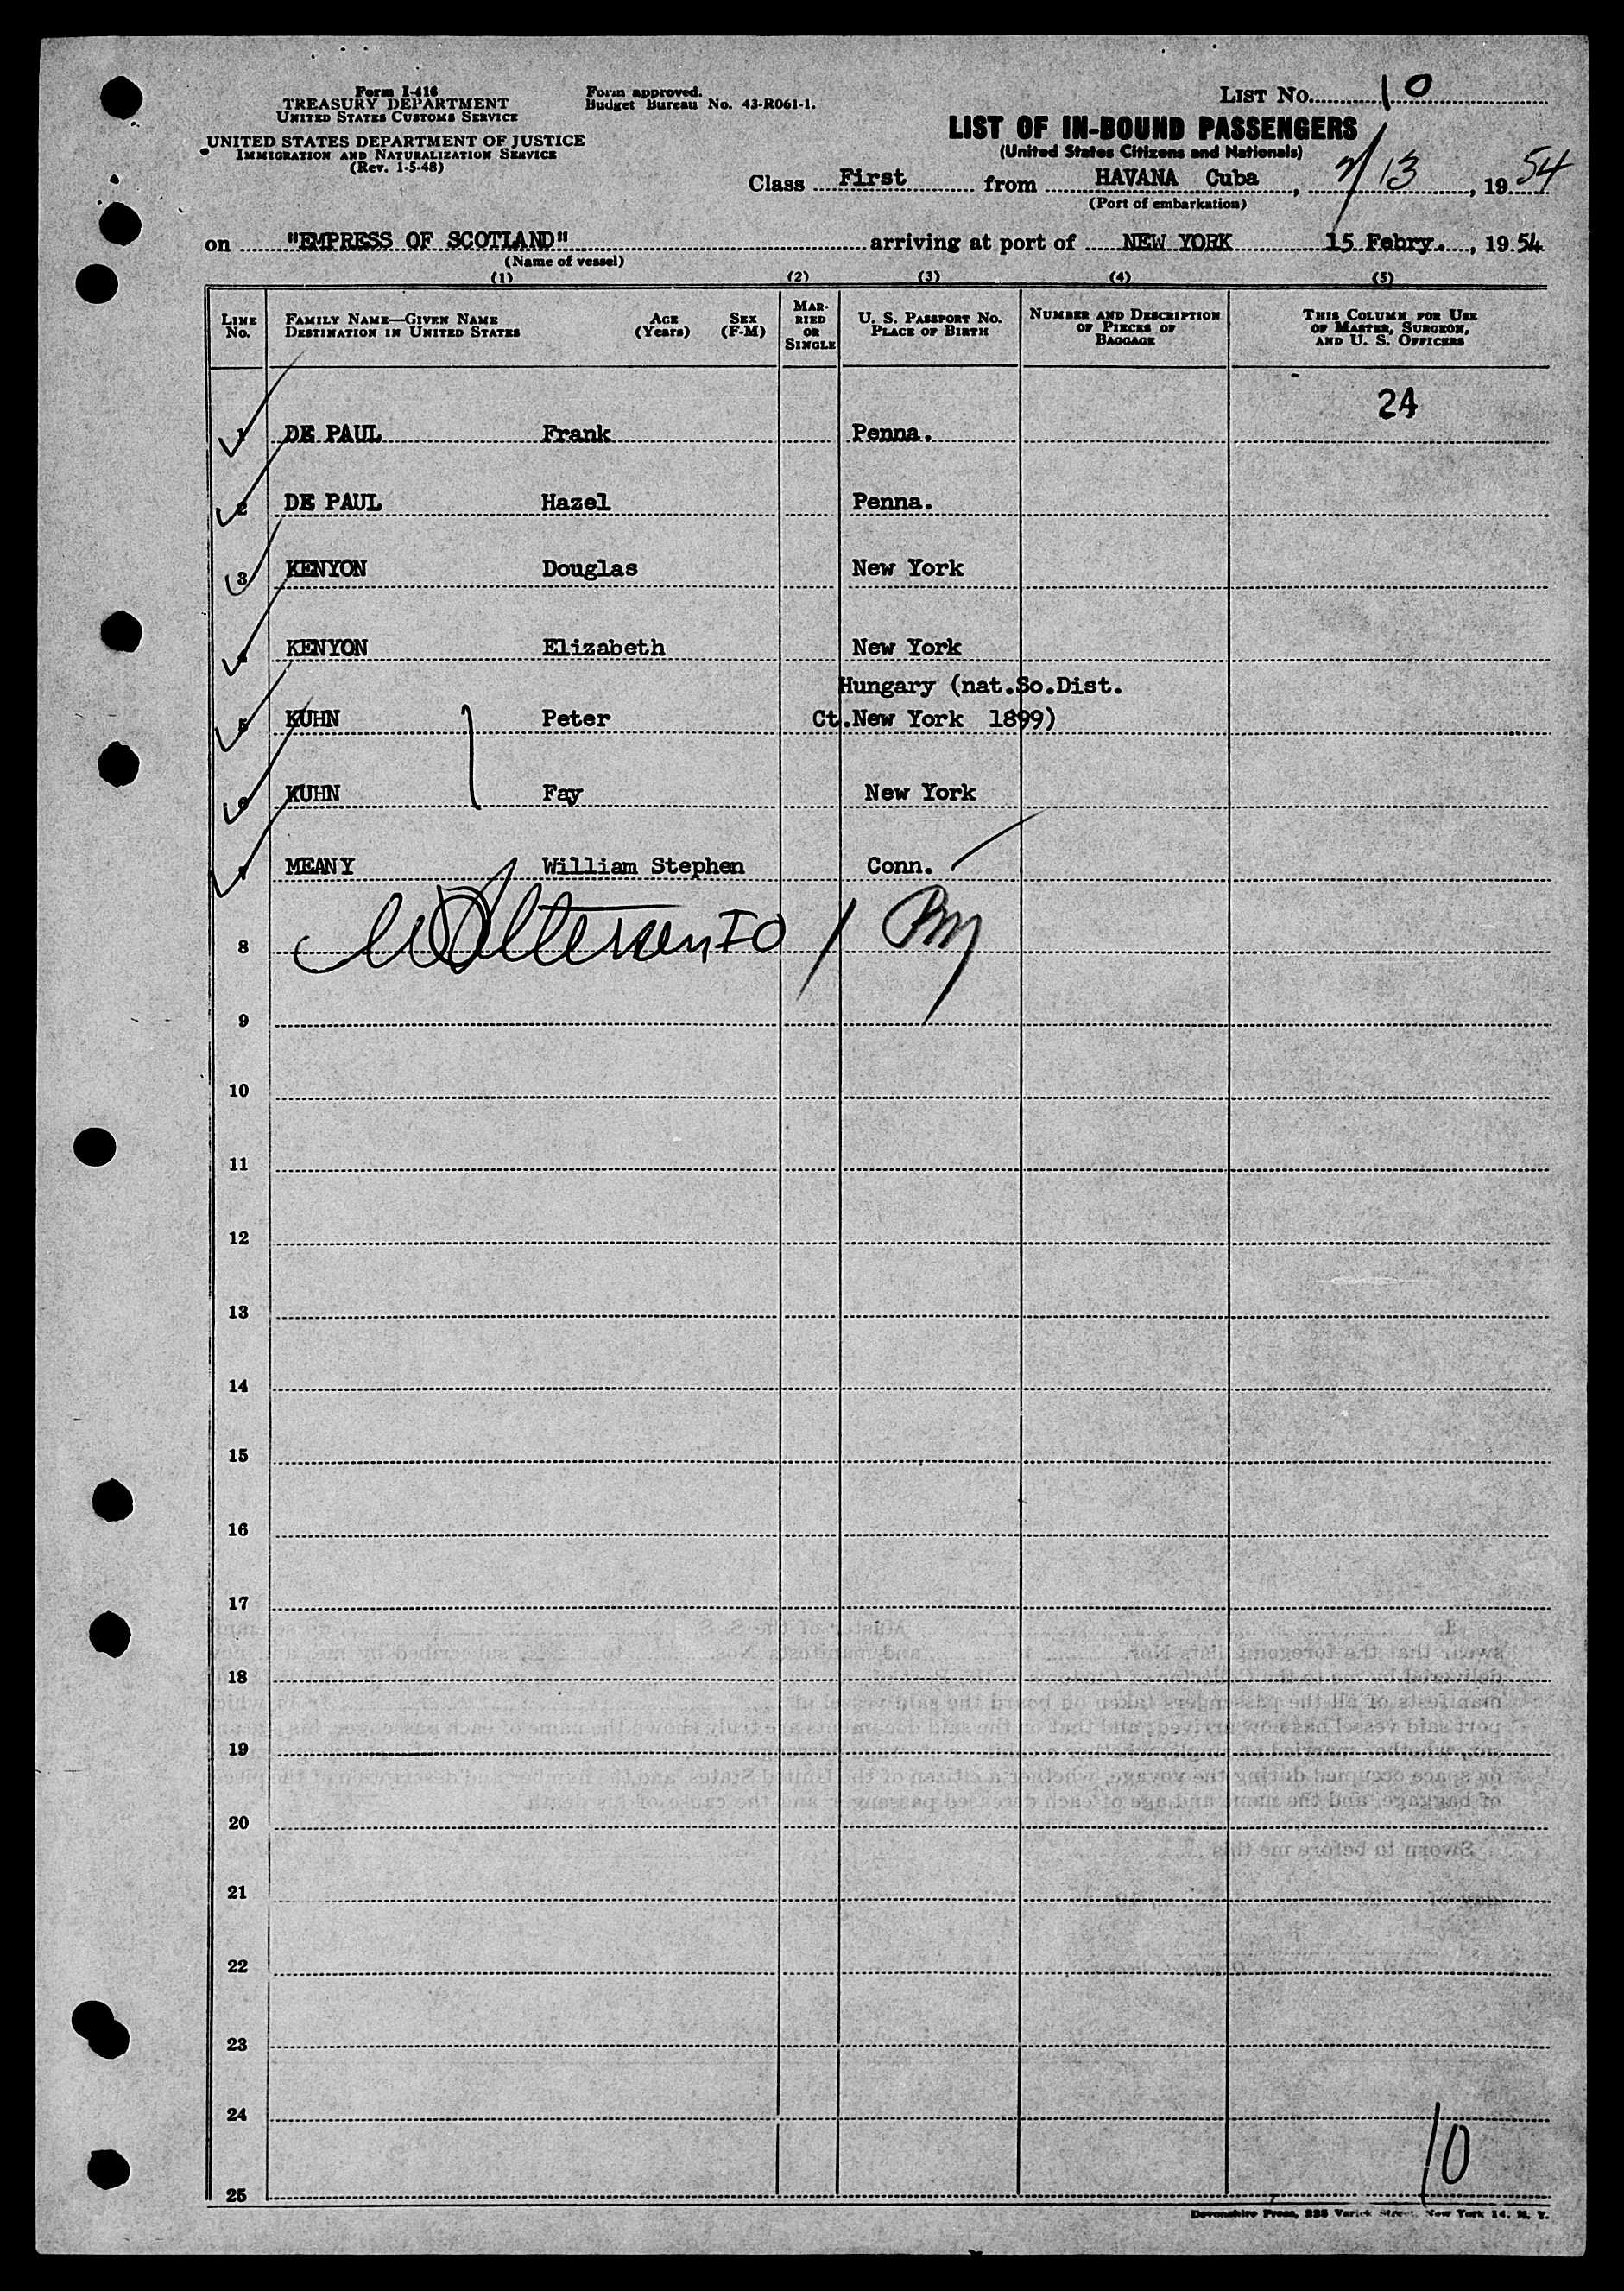 Form I-416
TREASURY DEPARTMENT
UNITED STATES CUSTOMS SERVICE
UNITED STATES DEPARTMENT OF JUSTICE
IMMIGRATION AND NATURALIZATION SERVICE
(Rev. 1-5-48)
Form approved.
Budget Bureau No. 43-R061-1.
LIST No. 10
LIST OF IN-BOUND PASSENGERS
(United States Citizens and Nationals)
Class First from HAVANA Cuba, 2/13, 1954
(Port of embarkation)
on "EMPRESS OF SCOTLAND" arriving at port of NEW YORK 15 Febry., 1954
(Name of vessel)
(1) (2) (3) (4) (5)
LINE No. FAMILY NAME—GIVEN NAME DESTINATION IN UNITED STATES AGE (Years) SEX (F-M) MARRIED OR SINGLE U. S. PASSPORT No. PLACE OF BIRTH NUMBER AND DESCRIPTION OF PIECES OF BAGGAGE THIS COLUMN FOR USE OF MASTER, SURGEON, AND U. S. OFFICERS
24
1 DE PAUL Frank Penna.
2 DE PAUL Hazel Penna.
3 KENYON Douglas New York
4 KENYON Elizabeth New York
Hungary (nat.So.Dist.
5 KUHN Peter Ct.New York 1899)
6 KUHN Fay New York
7 MEANY William Stephen Conn.
8
9
10
11
12
13
14
15
16
17
18
19
20
21
22
23
24
10
25
Devonshire Press, 225 Varick Street, New York 14, N. Y.